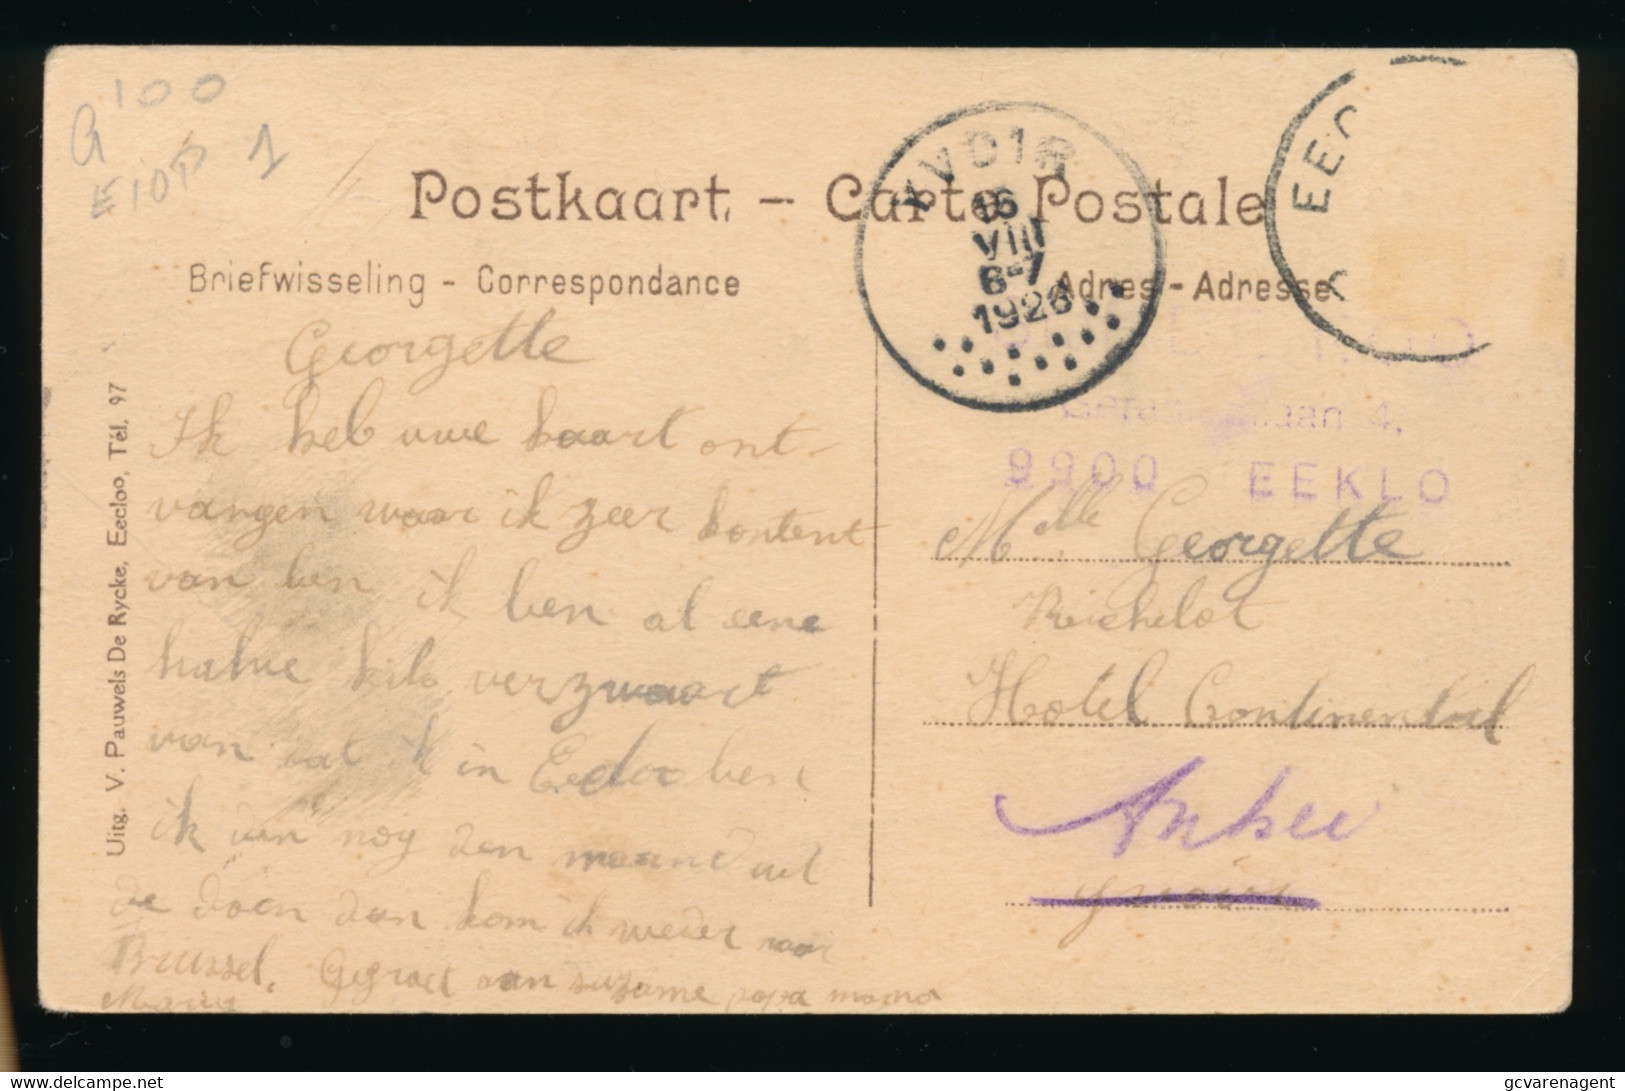 100
G
E10P 1
Postkaart – Carte Postale
Briefwisseling - Correspondance
Adres - Adresse
YVOIR
16
VIII
6-7
1926
EECLO
Uitg. V. Pauwels De Rycke, Eecloo, Tél. 97
Georgette
Ik heb uwe kaart ont-
vangen waar ik zeer kontent
van ben ik ben al eene
halve kilo verzwaart
van dat ik in Eecloo ben
ik van nog den maand uit
te doen dan kom ik weder naar
Brussel. Gegroet aan suzame papa mama
laan 4,
9900 EEKLO
Melle Georgette
Richelot
Hotel Continental
Anhée
Yvoir